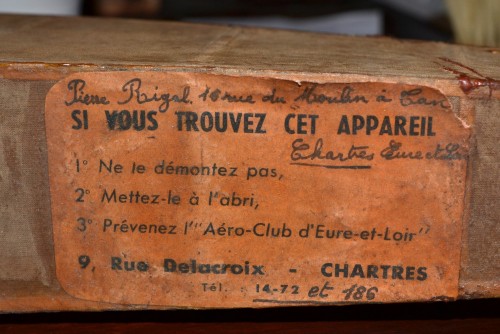 Pierre Rigal. 16 rue du Moulin à Tan
SI VOUS TROUVEZ CET APPAREIL
Chartres Eure et Loir
1° Ne le démontez pas,
2° Mettez-le à l'abri,
3° Prévenez l'"Aéro-Club d'Eure-et-Loir"
9, Rue Delacroix - CHARTRES
Tél. : 14-72 et 186